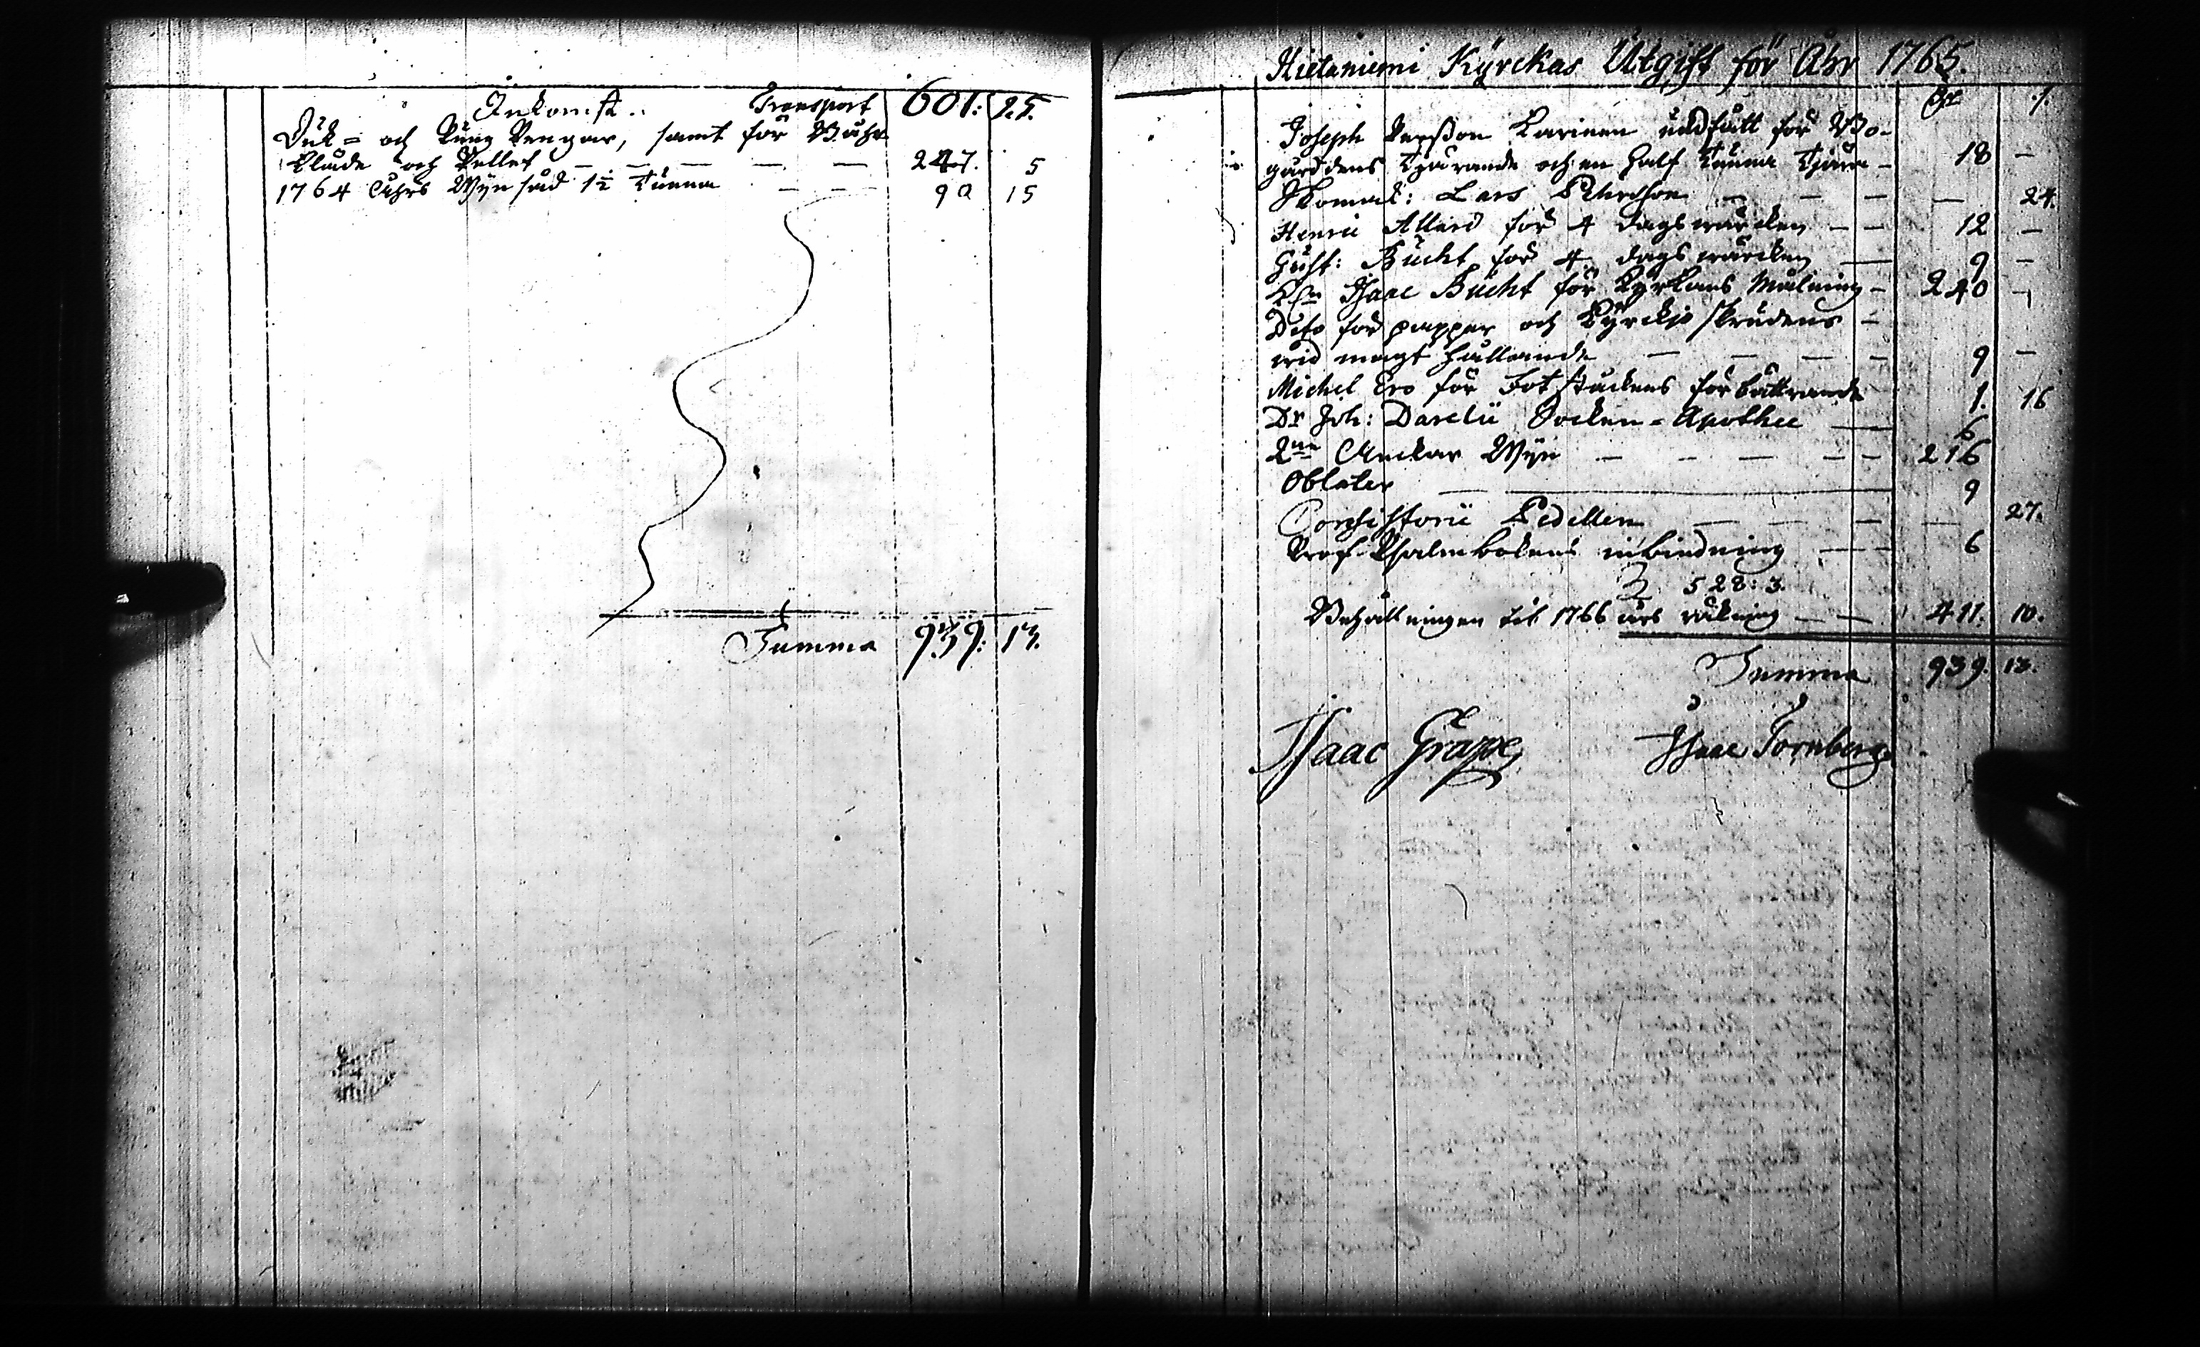 Inkomst. Transport 601: 25.
Duk= och Pung Pengar, samt för Båhr
kläde och Pellet — — — — 247. 5
1764 Åhrs Wijn säd 1½ Tunna — — 90 15
Summa 939: 13.
Hietaniemi Kyrckas Utgift för Åhr 1765.
Joseph Persson Karinen undfått för Bo-
gårddens Tjärande och en half Tunna Tjära — 18 —
Lars Pehrsson — — — — 24.
Henric Allard för 4 dagswärcken — — 12 —
Gust: Bucht för 4 dagswärcken — 9 —
Isaac Bucht för Kyrkans Målning — 240 —
Dito för papper och Kyrckjo skrudens —
wid magt hållande — — — — 9 —
Michel Ers för Fot stuckens förbättrande 1. 16
Dr Joh: Darelii Socken=Apothec — 6
2ne Anckar Wijn — — — — 216
Oblater — 9
Consistorii Pedellen — — — — 27.
Psalmbokens inbindning — — 6
528: 3.
Behållningen til 1766 års räkning — — 411. 10.
Summa 939. 13.
Isaac Grape Isaac Tornberg